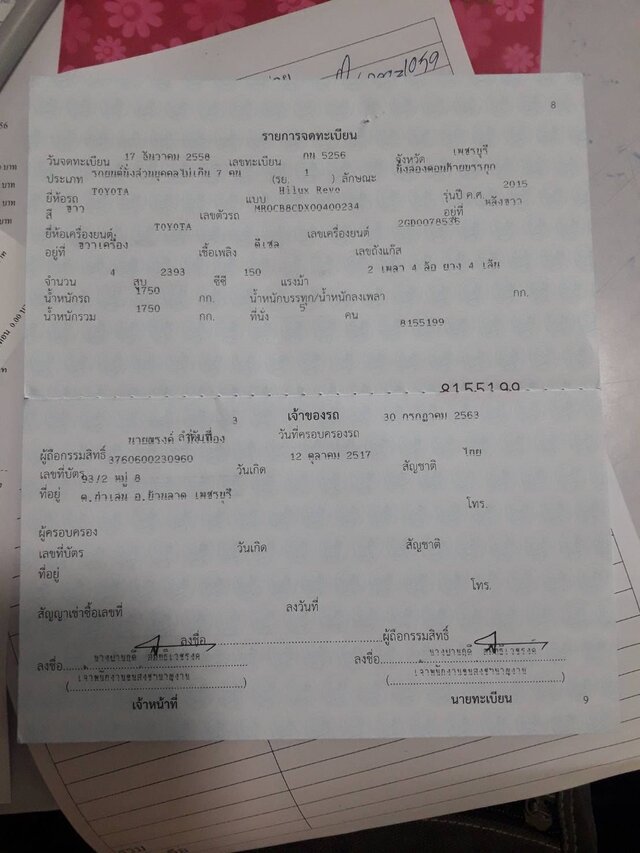 8
รายการจดทะเบียน
วันจดทะเบียน 17 ธันวาคม 2558 เลขทะเบียน กน 5256 จังหวัด เพชรบุรี
ประเภท รถยนต์นั่งส่วนบุคคลไม่เกิน 7 คน (รย. 1 ) ลักษณะ นั่งสองตอนท้ายบรรทุก
ยี่ห้อรถ TOYOTA แบบ Hilux Revo รุ่นปี ค.ศ. 2015
สี ขาว เลขตัวรถ MR0CB8CDX00400234 อยู่ที่
ยี่ห้อเครื่องยนต์ TOYOTA เลขเครื่องยนต์
อยู่ที่ เชื้อเพลิง ดีเซล เลขถังแก๊ส
จำนวน 4 สูบ 2393 ซีซี 150 แรงม้า 2 เพลา 4 ล้อ ยาง 4 เส้น
น้ำหนักรถ 1750 กก. น้ำหนักบรรทุก/น้ำหนักลงเพลา กก.
น้ำหนักรวม 1750 กก. ที่นั่ง 5 คน
8155199
8155199
ลำดับที่ 3 เจ้าของรถ วันที่ครอบครองรถ 30 กรกฎาคม 2563
ผู้ถือกรรมสิทธิ์ นายณรงค์
เลขที่บัตร 3760600230960 วันเกิด 12 ตุลาคม 2517 สัญชาติ ไทย
ที่อยู่ 93/2 หมู่ 8
ต.ถ้ำเสน อ.บ้านลาด เพชรบุรี โทร.
ผู้ครอบครอง
เลขที่บัตร วันเกิด สัญชาติ
ที่อยู่
โทร.
สัญญาเช่าซื้อเลขที่ ลงวันที่
ลงชื่อ ผู้ถือกรรมสิทธิ์
ลงชื่อ ลงชื่อ
เจ้าพนักงานขนส่งชำนาญงาน เจ้าพนักงานขนส่งชำนาญงาน
เจ้าหน้าที่ นายทะเบียน
9